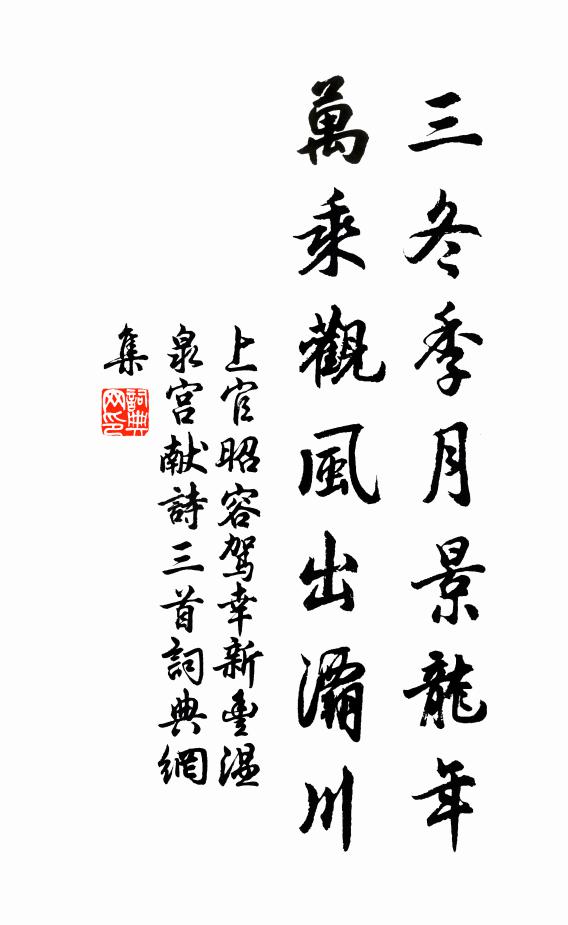 三冬季月景龍年
萬乘觀風出灞川
上官昭容駕幸新豐温
泉宮献詩三首詞典網
集
詞典
网印